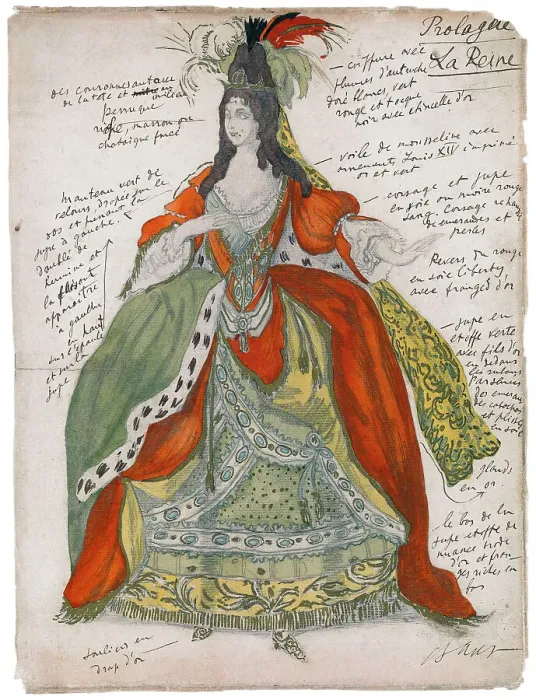 Prologue
La Reine
des couronnes autour
de la tête et
perruque
riche, marron ou
chataigne foncé
coiffure avec
plumes d'autruche
doré blanes, vert
rouge et toque
noir avec etincelle d'or
voile de mousseline avec
ornements Louis XIV imprimé
or et vert
manteau vert de
velours, drapée sur le
dos et pendant sur la
jupe à gauche.
doublé de
hermine et
la
apparaître
à gauche
en haut
sur l'épaule
et sur la
jupe
corsage et jupe
en soie ou moire rouge
sang. Corsage
de emeraudes et de
perles
Revers du rouge
en soie liberty,
avec franges d'or
jupe en
etoffe verte
avec fils d'or
les rubans
des emeraudes
de cabochon
et plissé
en soie
glands
en or.
le bas de la
jupe etoffe de
nuance
d'or et fran-
ges riches en
bas
souliers en
drap d'or
Bakst